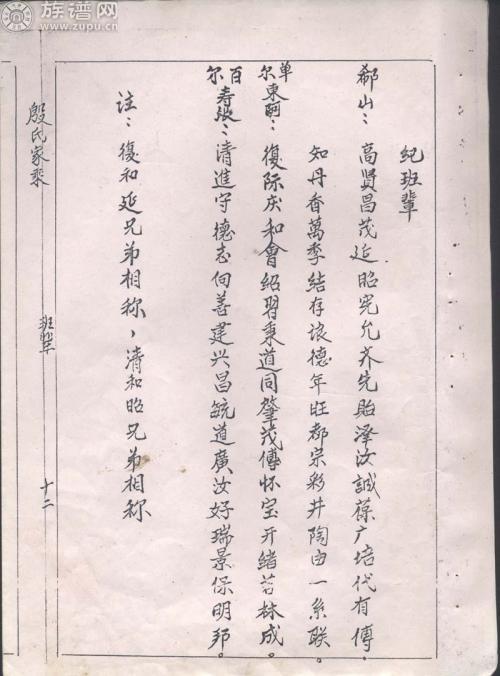 族谱网
www.zupu.cn
纪班辈
郗山：高賢昌茂延昭宪允齐先贻泽汝誠葆广培代有傳.
知丹香萬季结存浪德年旺都宗彩井陶由一系联。
单尔東：復际庆和會绍習秉道同肇茂傅怀宝开绪若林成。
百尔寿張：清進守德志向善建兴昌毓道廣汝好瑞景保明邦。
注：復和延兄弟相称，清和昭兄弟相称
殷氏家乘
班辈
十二